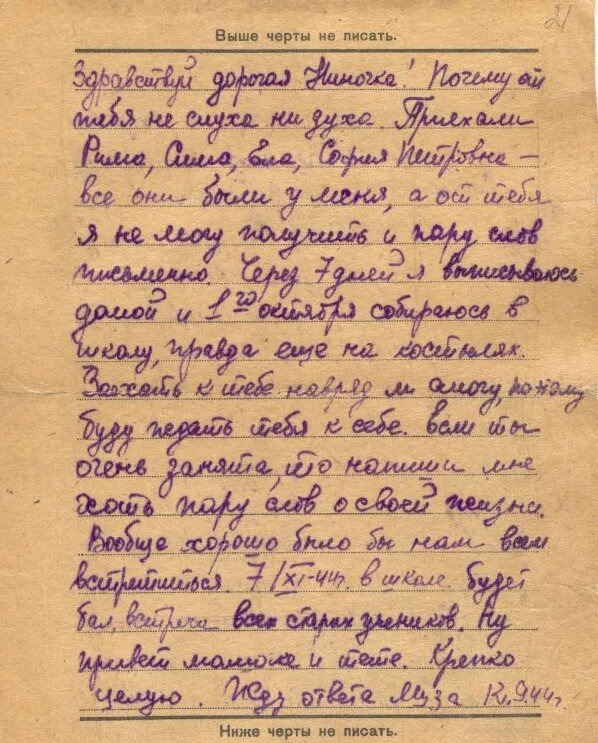 21
Выше черты не писать.
Здравствуй дорогая Ниночка! Почему от
тебя не слуха ни духа. Приехали
Рима, Сима, Ела, София Петровна —
все они были у меня, а от тебя
я не могу получить и пару слов
письменно. Через 7 дней я выписываюсь
домой и 1го октября собираюсь в
школу, правда еще на костылях.
Заехать к тебе навряд ли смогу, поэтому
буду ждать тебя к себе. Если ты
очень занята, то напиши мне
хоть пару слов о своей жизни.
Вообще хорошо было бы нам всем
встретиться. 7/XI-44г. в школе будет
бал, встреча всех старых учеников. Ну
привет мамочке и тете. Крепко
целую. Жду ответа Муза К. 9.44г.
Ниже черты не писать.